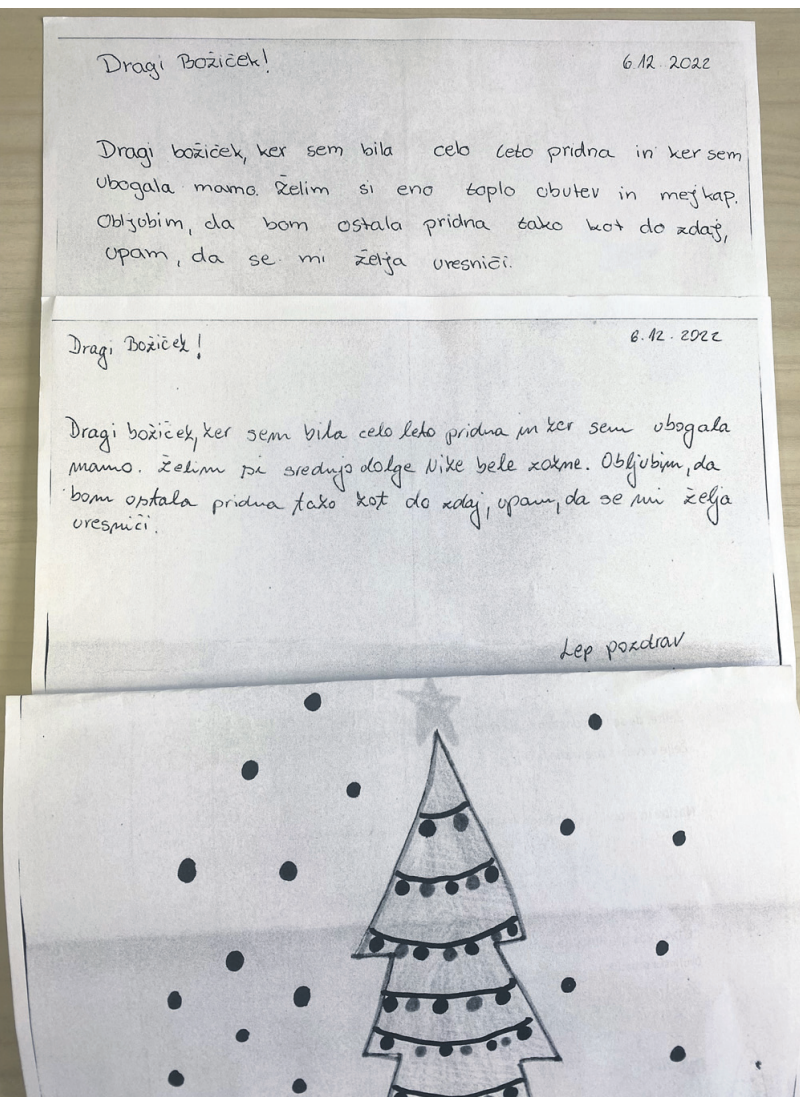 Dragi Božiček!
6.12.2022
Dragi božiček, ker sem bila celo leto pridna in ker sem
ubogala mamo. Želim si eno toplo obutev in mejkap.
Obljubim, da bom ostala pridna tako kot do zdaj,
upam, da se mi želja uresniči.
Dragi Božiček!
6.12.2022
Dragi božiček, ker sem bila celo leto pridna in ker sem ubogala
mamo. Želim si srednjo dolge Nike bele zokne. Obljubim, da
bom ostala pridna tako kot do zdaj, upam, da se mi želja
uresniči.
Lep pozdrav